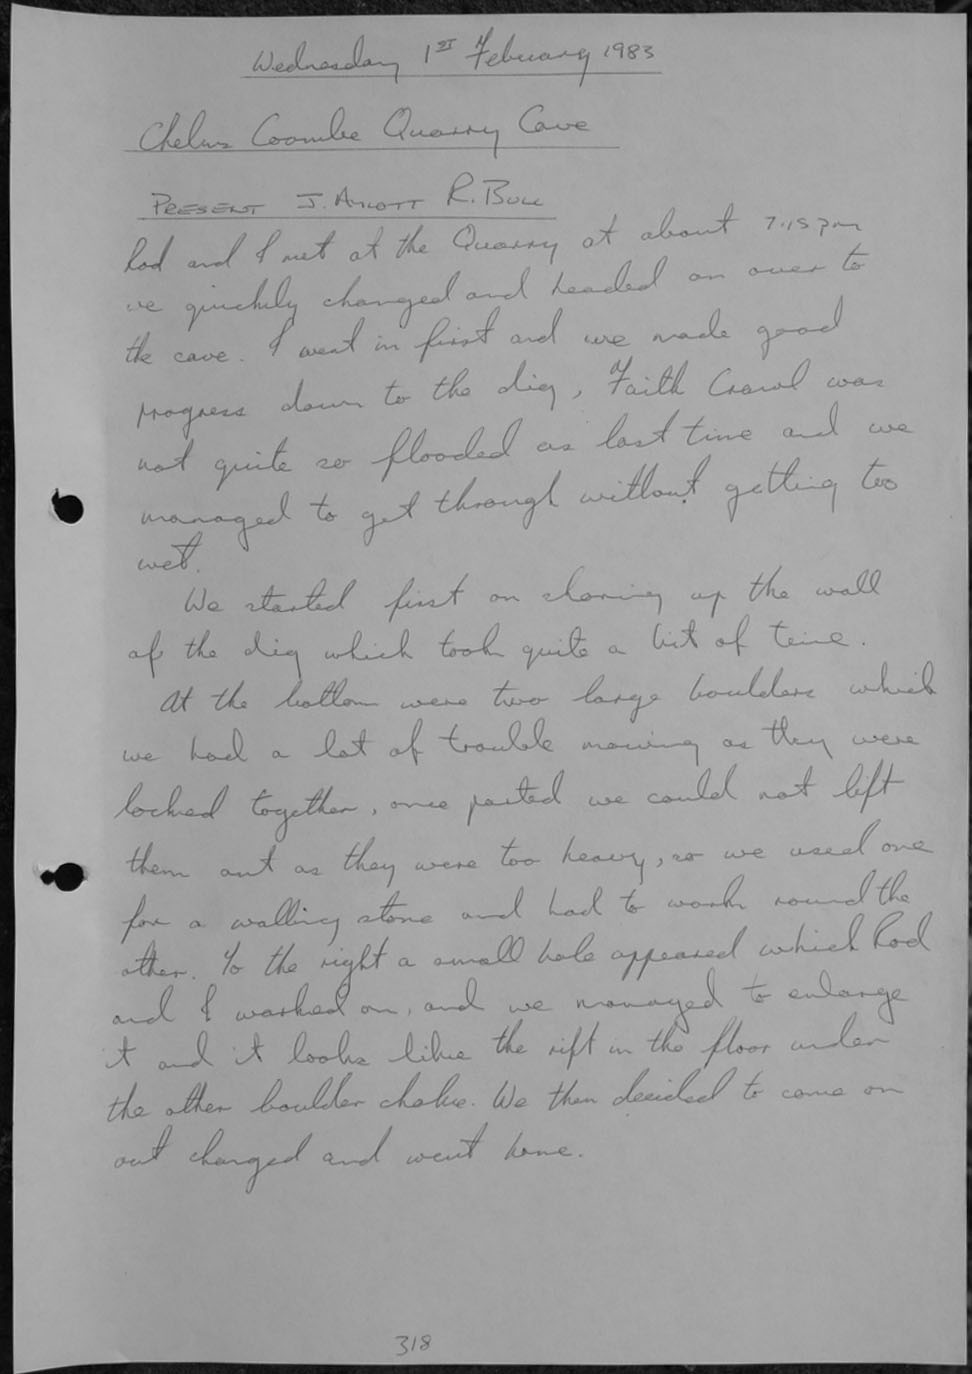 Wednesday 1ST February 1983
Chelms Coombe Quarry Cave
PRESENT J. AYLOTT R. BULL
Rod and I met at the Quarry at about 7.15 pm
we quickly changed and headed on over to
the cave. I went in first and we made good
progress down to the dig, Faith Crawl was
not quite so flooded as last time and we
managed to get through without getting too
wet.
We started first on shoring up the wall
of the dig which took quite a bit of time.
At the bottom were two large boulders which
we had a lot of trouble moving as they were
locked together, once parted we could not lift
them out as they were too heavy, so we used one
for a walling stone and had to work round the
other. To the right a small hole appeared which Rod
and I worked on, and we managed to enlarge
it and it looks like the rift in the floor under
the other boulder choke. We then decided to come on
out changed and went home.
318